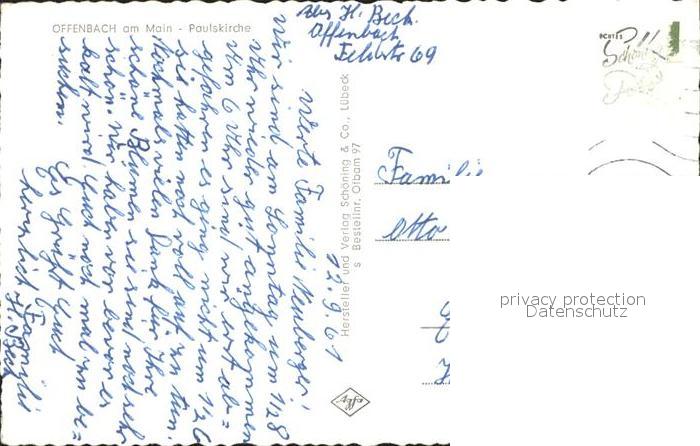 OFFENBACH am Main - Paulskirche
Abs. H. Beck.
Offenbach
Feldstr 69
Hersteller und Verlag Schöning & Co., Lübeck
s Bestellnr. Otbam 97
22.9.61
Werte Familie Neuberger!
Wir sind am Sonntag um 1/28
Uhr wieder gut angekommen
Um 6 Uhr sind wir erst ab=
gefahren es ging nicht um 1/2 6
sie hatten noch voll auf zu tun
Nochmals vielen Dank für Ihre
schöne Blumen sie sind noch sehr
schön. Wir haben vor bevor es
kalt wird Euch noch mal zu be=
suchen.
Es Grüßt Euch
herzlich Familie
H. Beck
Famili
Otto
Agfa
privacy protection
Datenschutz